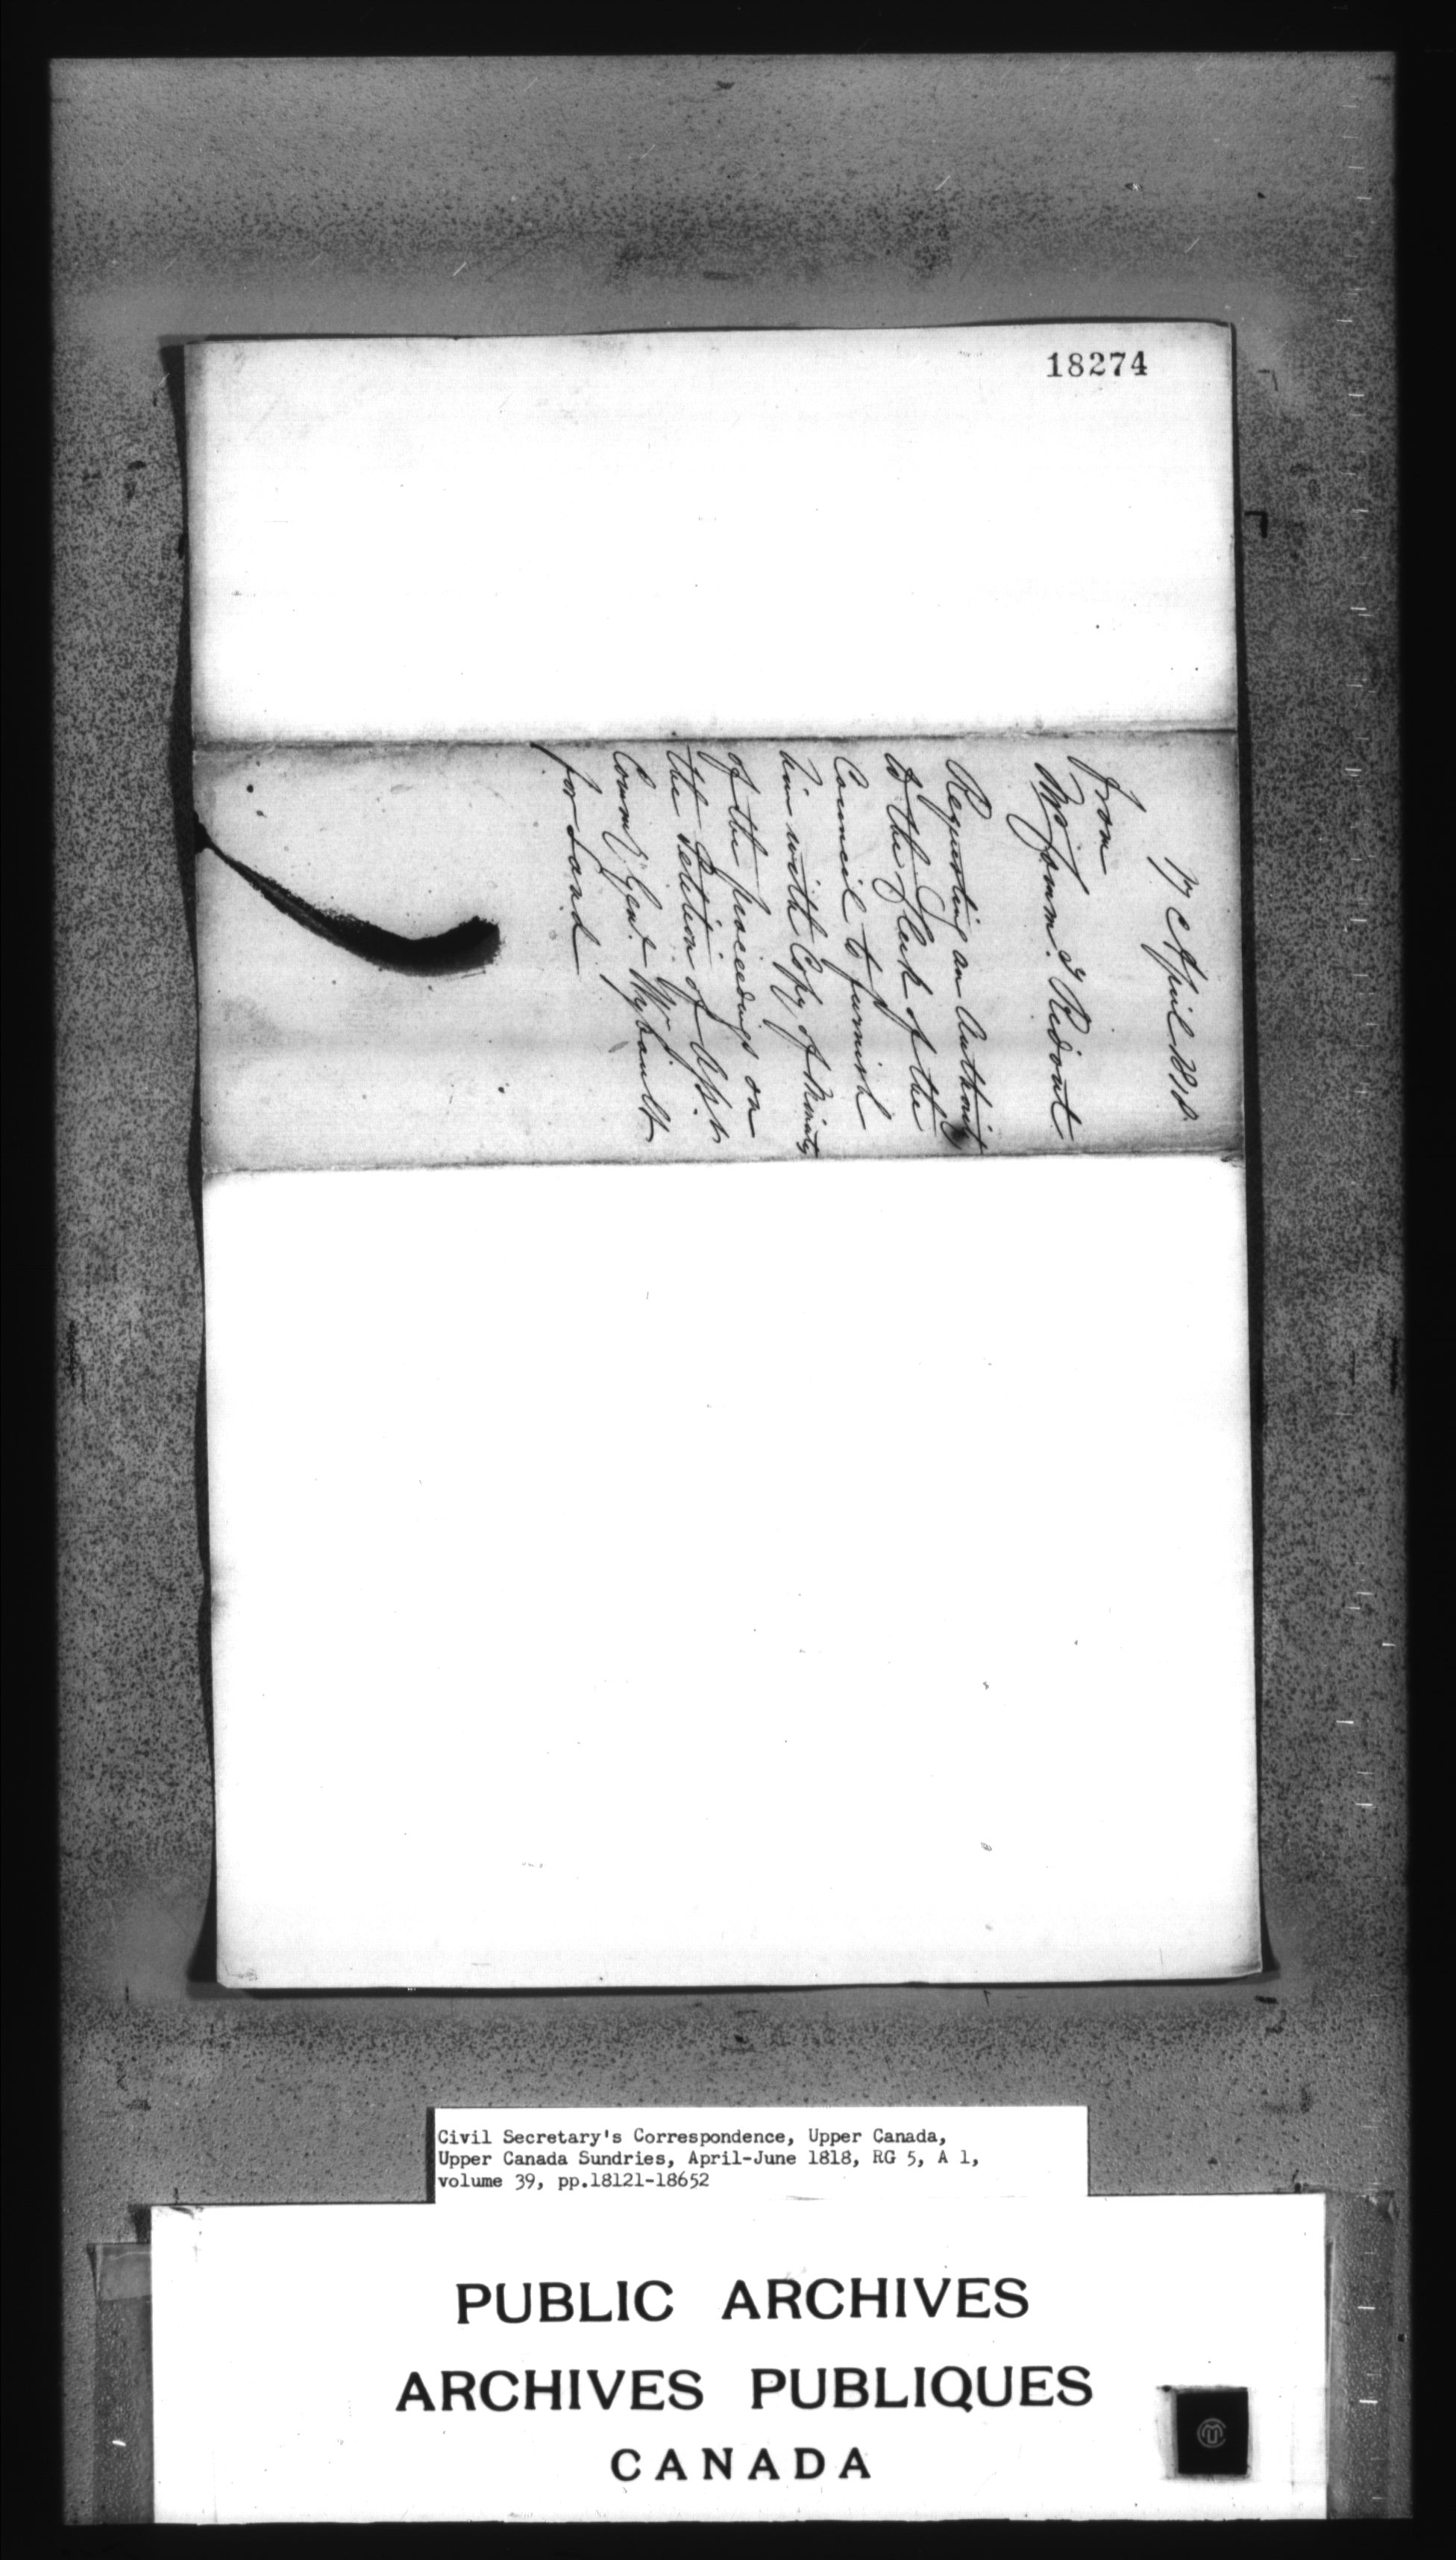 18274
April 1818.
From
Thos. Ridout
Requesting an Authority
to the Clerk of the
Council to furnish
him with Copy of Minutes
of the proceedings on
the Petition of Asst.
Commy. Genl. Wybault
for Land
Civil Secretary's Correspondence, Upper Canada,
Upper Canada Sundries, April-June 1818, RG 5, A 1,
volume 39, pp.18121-18652
PUBLIC ARCHIVES
ARCHIVES PUBLIQUES
CANADA